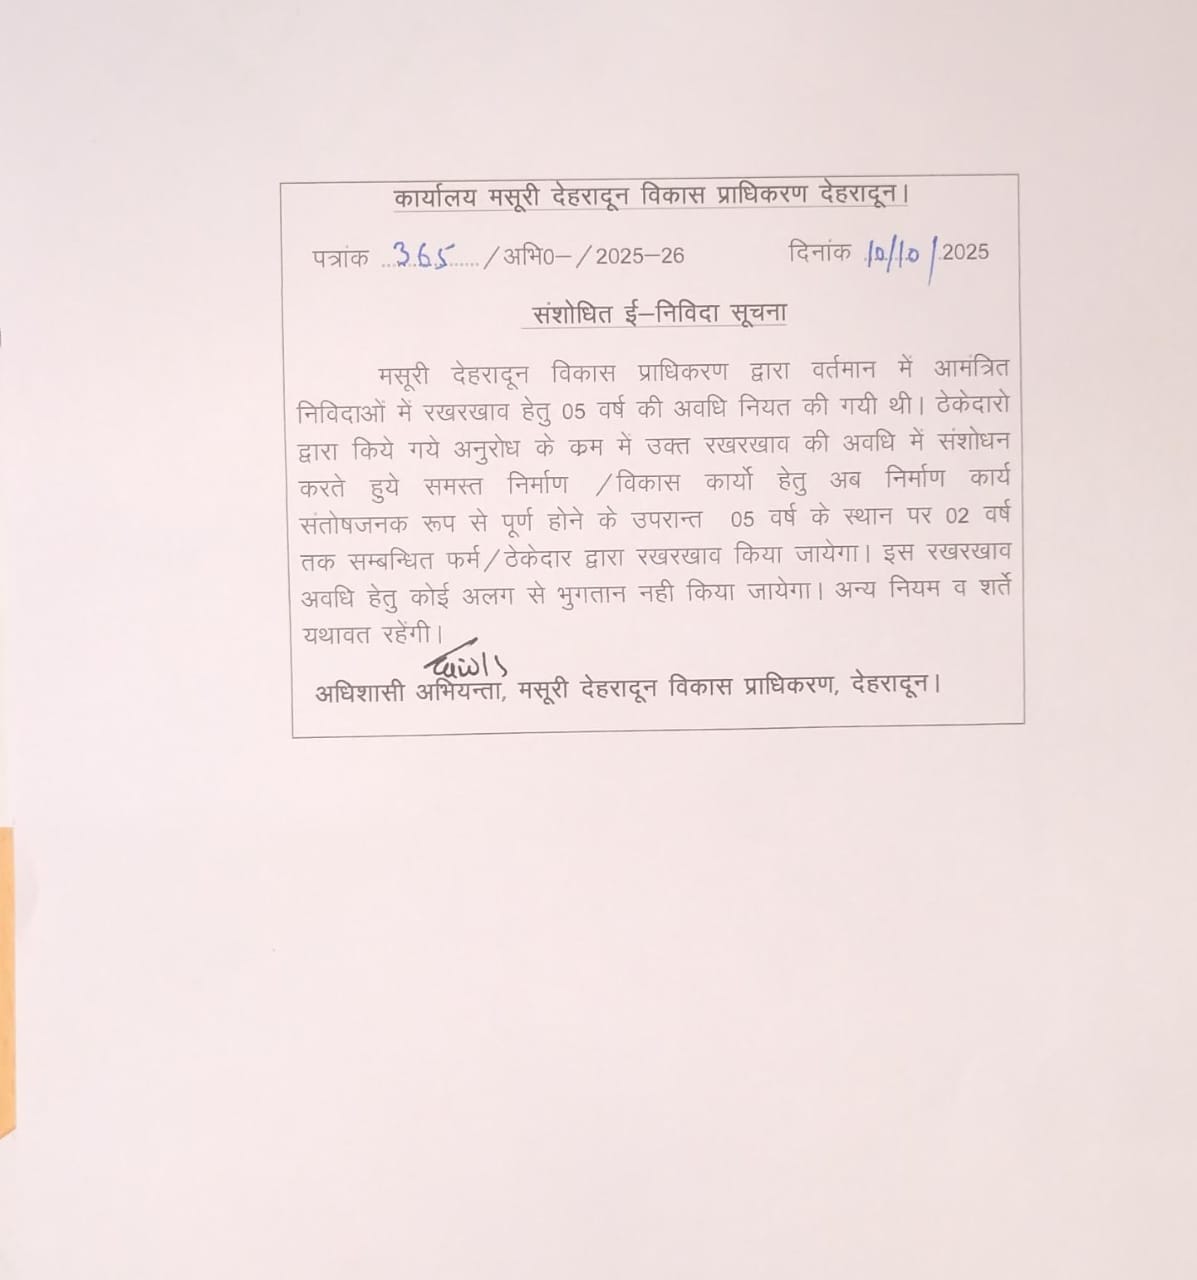 कार्यालय मसूरी देहरादून विकास प्राधिकरण देहरादून।
पत्रांक ..365....../अभि0-/2025-26 दिनांक 10/10/2025
संशोधित ई-निविदा सूचना
मसूरी देहरादून विकास प्राधिकरण द्वारा वर्तमान में आमंत्रित
निविदाओं में रखरखाव हेतु 05 वर्ष की अवधि नियत की गयी थी। ठेकेदारो
द्वारा किये गये अनुरोध के कम में उक्त रखरखाव की अवधि में संशोधन
करते हुये समस्त निर्माण /विकास कार्यो हेतु अब निर्माण कार्य
संतोषजनक रूप से पूर्ण होने के उपरान्त 05 वर्ष के स्थान पर 02 वर्ष
तक सम्बन्धित फर्म/ठेकेदार द्वारा रखरखाव किया जायेगा। इस रखरखाव
अवधि हेतु कोई अलग से भुगतान नही किया जायेगा। अन्य नियम व शर्ते
यथावत रहेंगी।
अधिशासी अभियन्ता, मसूरी देहरादून विकास प्राधिकरण, देहरादून।